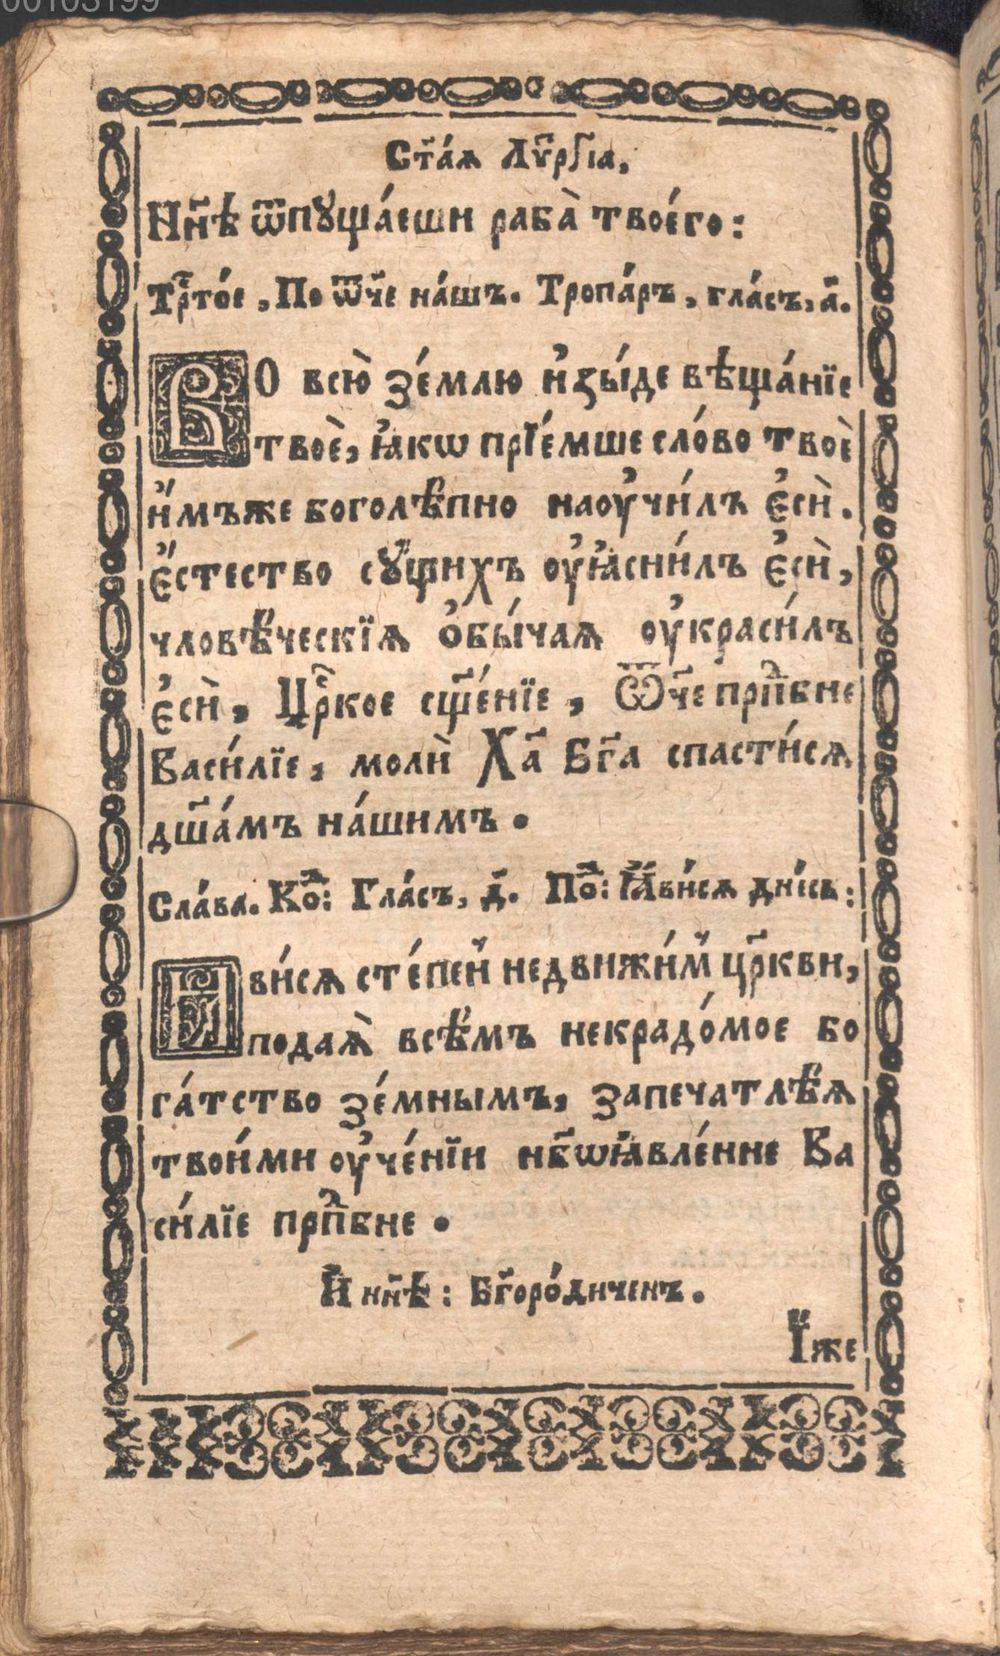 00103199
Ст҃а́ѧ Лѵ҃ргі́а,
Нн҃ѣ ѿпꙋща́еши раба̀ твоего:
Трⷭ҇то́е, По ѿч҃е на́шъ. Тропа́ръ, гла́съ, а҃.
ВО всю̀ зе́млю и҆зы́де вѣща́нїе
твоѐ, ꙗ҆́кѡ прїе́мше сло́во твоѐ
и҆́мъже боголѣ́пно наоу҆чи́лъ є҆сѝ.
є҆стество̀ сꙋ́щихъ оу҆ꙗсни́лъ є҆сѝ,
человѣ́ческїѧ ѻ҆бы́чаѧ оу҆краси́лъ
є҆сѝ, Црⷭ҇кое сщ҃е́нїе, Ѿч҃е прпⷣбне
Васи́лїе, молѝ Х҃а Бг҃а спасти́сѧ
дш҃а́мъ на́шимъ.
Сла́ва. Коⷣ: Гла́съ, д҃. Поⷣ: Ꙗ҆ви́сѧ дне́сь:
Ꙗ҆ви́сѧ сте́пень недвижи́мъ цр҃кви,
подаѧ̀ всѣ́мъ некрадо́мое бо
га́тство зе́мнымъ, запечатлѣ́ѧ
твои́ми оу҆че́нїи нб҃ѡꙗвле́нне Ва
си́лїе прпⷣбне.
И҆ нн҃ѣ: Бг҃оро́диченъ.
І҆́же